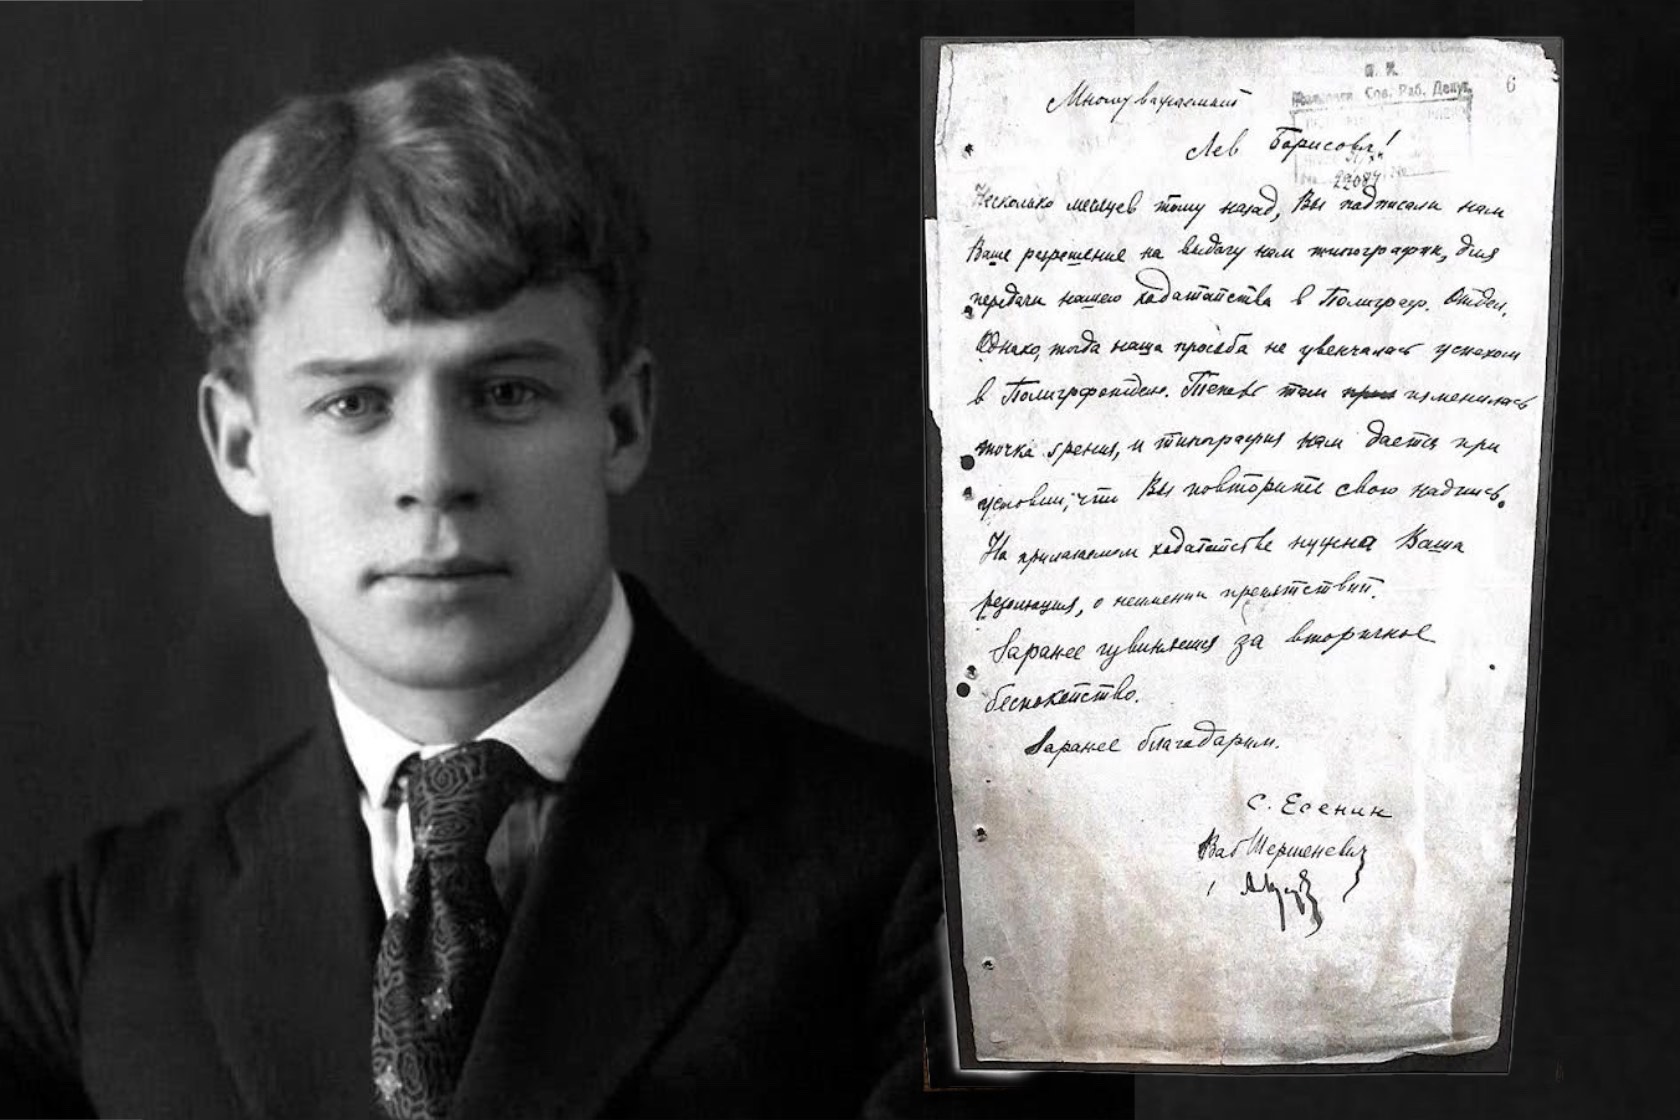 Многоуважаемый
6
Сов. Раб. Депут.
Лев Борисовч!
22084
Несколько месяцев тому назад, Вы подписали нам
Ваше разрешение на выдачу нам типографии, для
передачи нашего ходатайства в Полиграф. Отдел.
Однако, тогда наша просьба не увенчалась успехом
в Полиграфотделе. Теперь там изменилась
точка зрения, и типография нам дается при
условии, что Вы повторите свою надпись.
На прилагаемом ходатайстве нужна Ваша
резолюция, о неимении препятствий.
Заранее извиняемся за вторичное
беспокойство.
Заранее благодарим.
С. Есенин
Вад Шершеневич